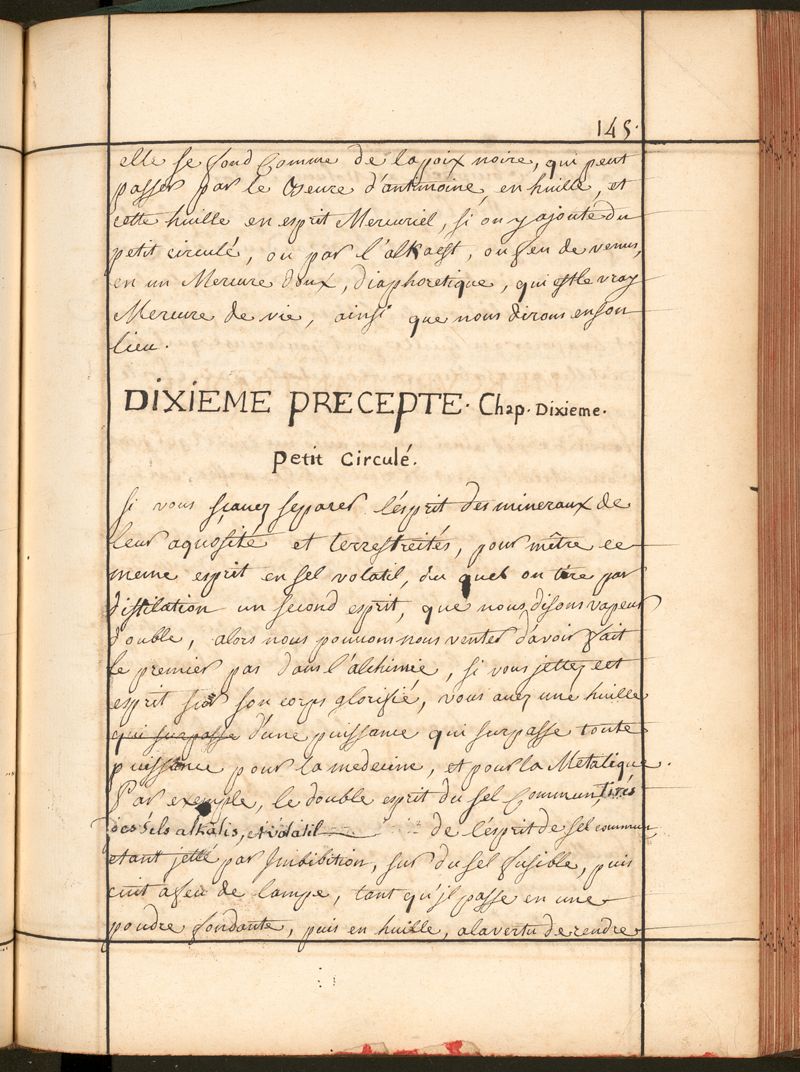 145.
elle se fond Comme de la poix noire, qui peut
passer par le Beurre d'antimoine, en huille, et
cette huille en esprit Mercuriel, si on y ajoute du
petit circulé, ou par l'alkaest, ou feu de venus,
en un Mercure doux, diaphoretique, qui est le vray
Mercure de vie, ainsi que nous dirons en son
lieu.
DIXIEME PRECEPTE. Chap. Dixieme.
Petit Circulé.
Si vous scauez separer l'esprit des mineraux de
leur aquosité et terrestreités, pour mêtre ce
meme esprit en sel volatil, du quel on tire par
distilation un second esprit, que nous disons vapeur
double, alors nous pouvons nous venter d'avoir fait
le premier pas dans l'alchimie, si vous jettez cet
esprit sur son corps glorifié, vous auez une huille
qui surpasse d'une puissance qui surpasse toute
puissance pour la medecine, et pour la Metalique.
Par exemple, le double esprit du sel Commun, tirés
des sels alkalis, et volatil de l'esprit de sel commun,
etant jetté par Imbibition, sur du sel fusible, puis
cuit a feu de lampe, tant qu'jl passe en une
poudre fondante, puis en huille, a la vertu de rendre